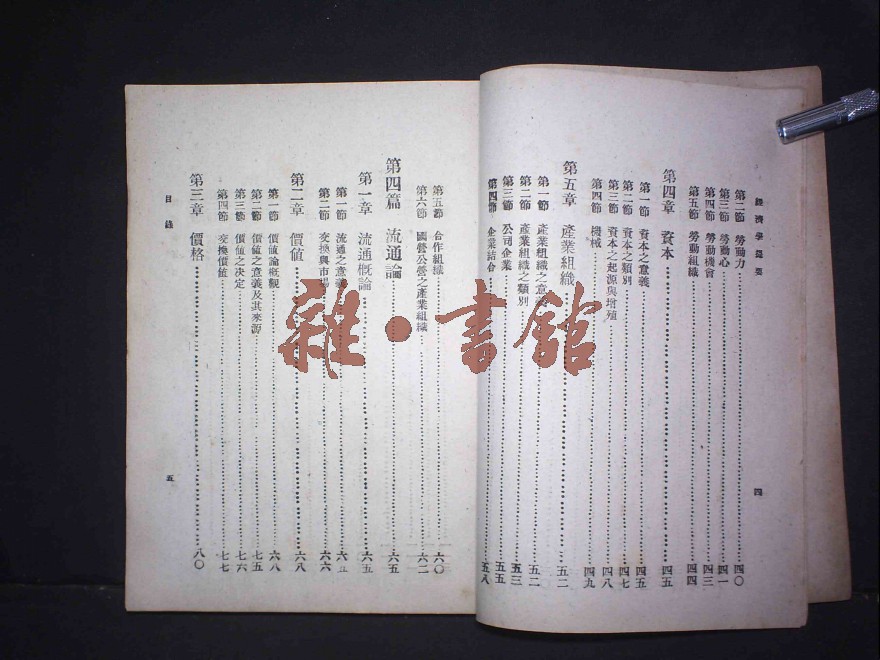 經濟學綱要
第二節 勞動力 四〇
第三節 勞動心 四一
第四節 勞動機會 四三
第五節 勞動組織 四四
第四章 資本 四五
第一節 資本之意義 四五
第二節 資本之類別 四七
第三節 資本之起源與增殖 四八
第四節 機械 四九
第五章 產業組織 五二
第一節 產業組織之意義 五二
第二節 產業組織之類別 五三
第三節 公司企業 五五
第四節 企業結合 五八
四
第五節 合作組織 六〇
第六節 國營公營之產業組織 六二
第四篇 流通論 六五
第一章 流通概論 六五
第一節 流通之意義 六五
第二節 交換與市場 六六
第二章 價值 六八
第一節 價值論概觀 六八
第二節 價值之意義及其來源 七五
第三節 價值之決定 七六
第四節 交換價值 七七
第三章 價格 八〇
目錄
五
雜·書館